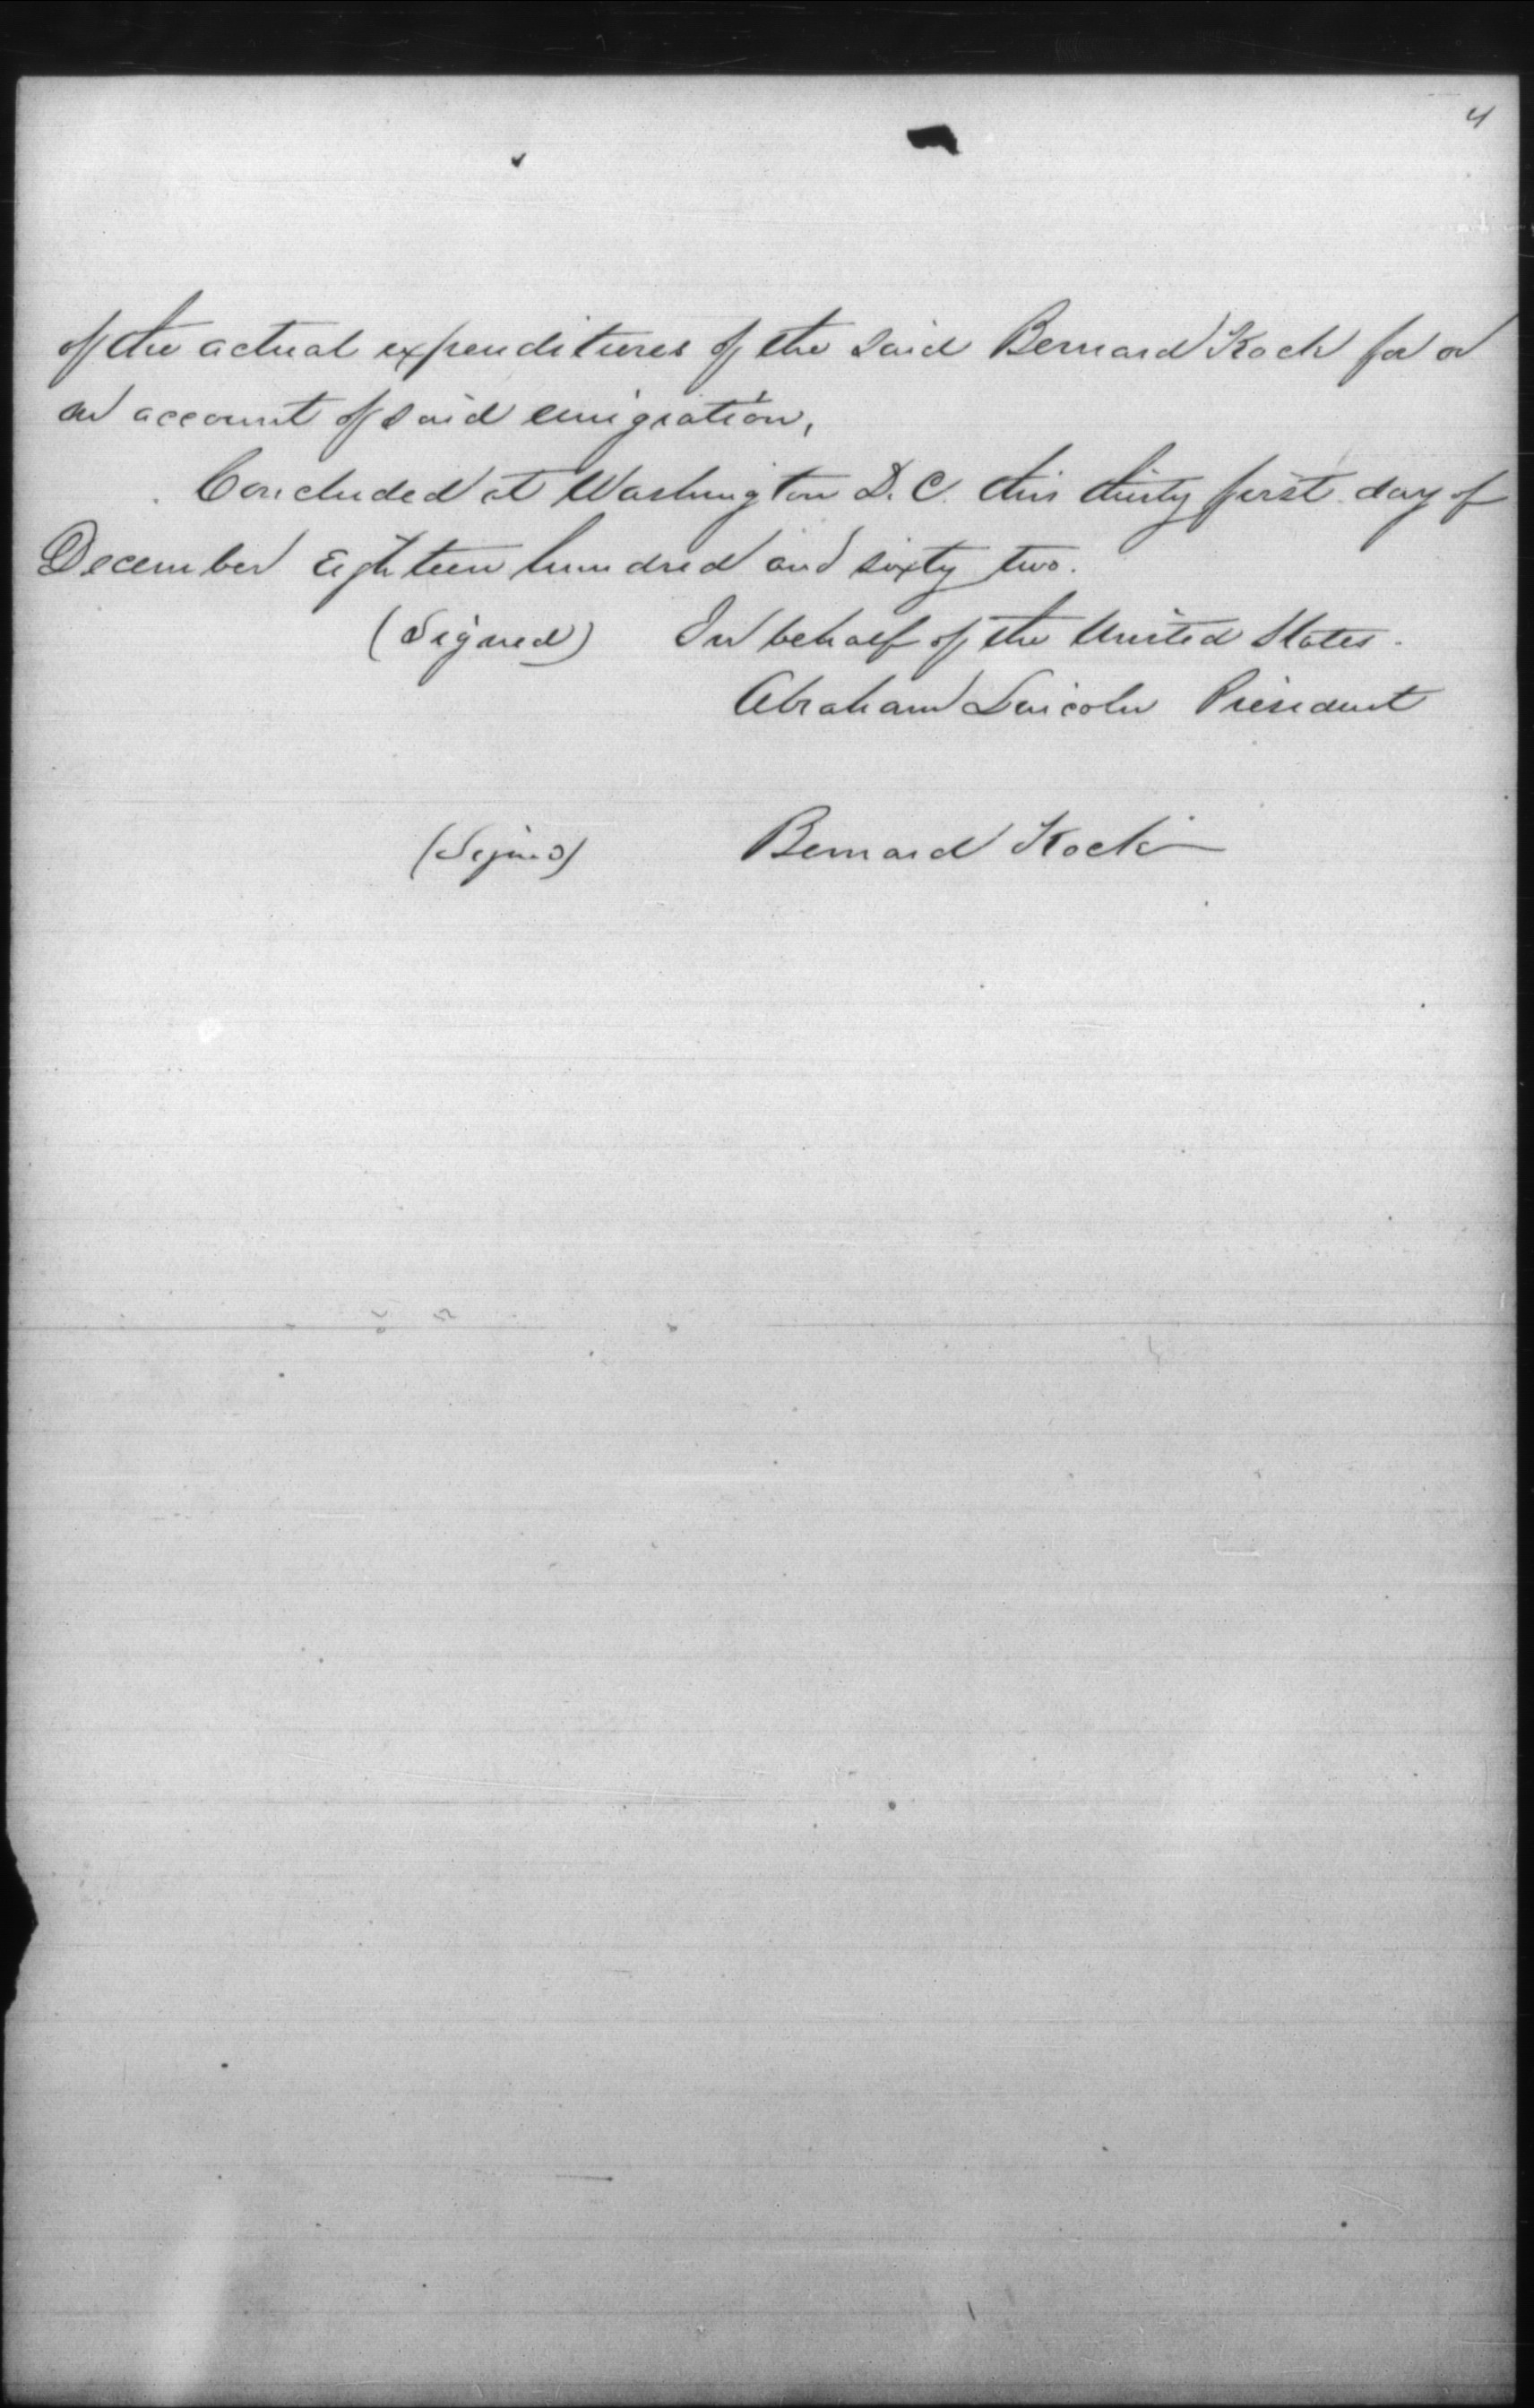 4
of the actual expenditures of the said Bernard Kock for or
on account of said emigration,
Concluded at Washington D.C. this thirty first day of
December Eighteen hundred and sixty two.
(Signed) In behalf of the United States.
Abraham Lincoln President
(Signed) Bernard Kock